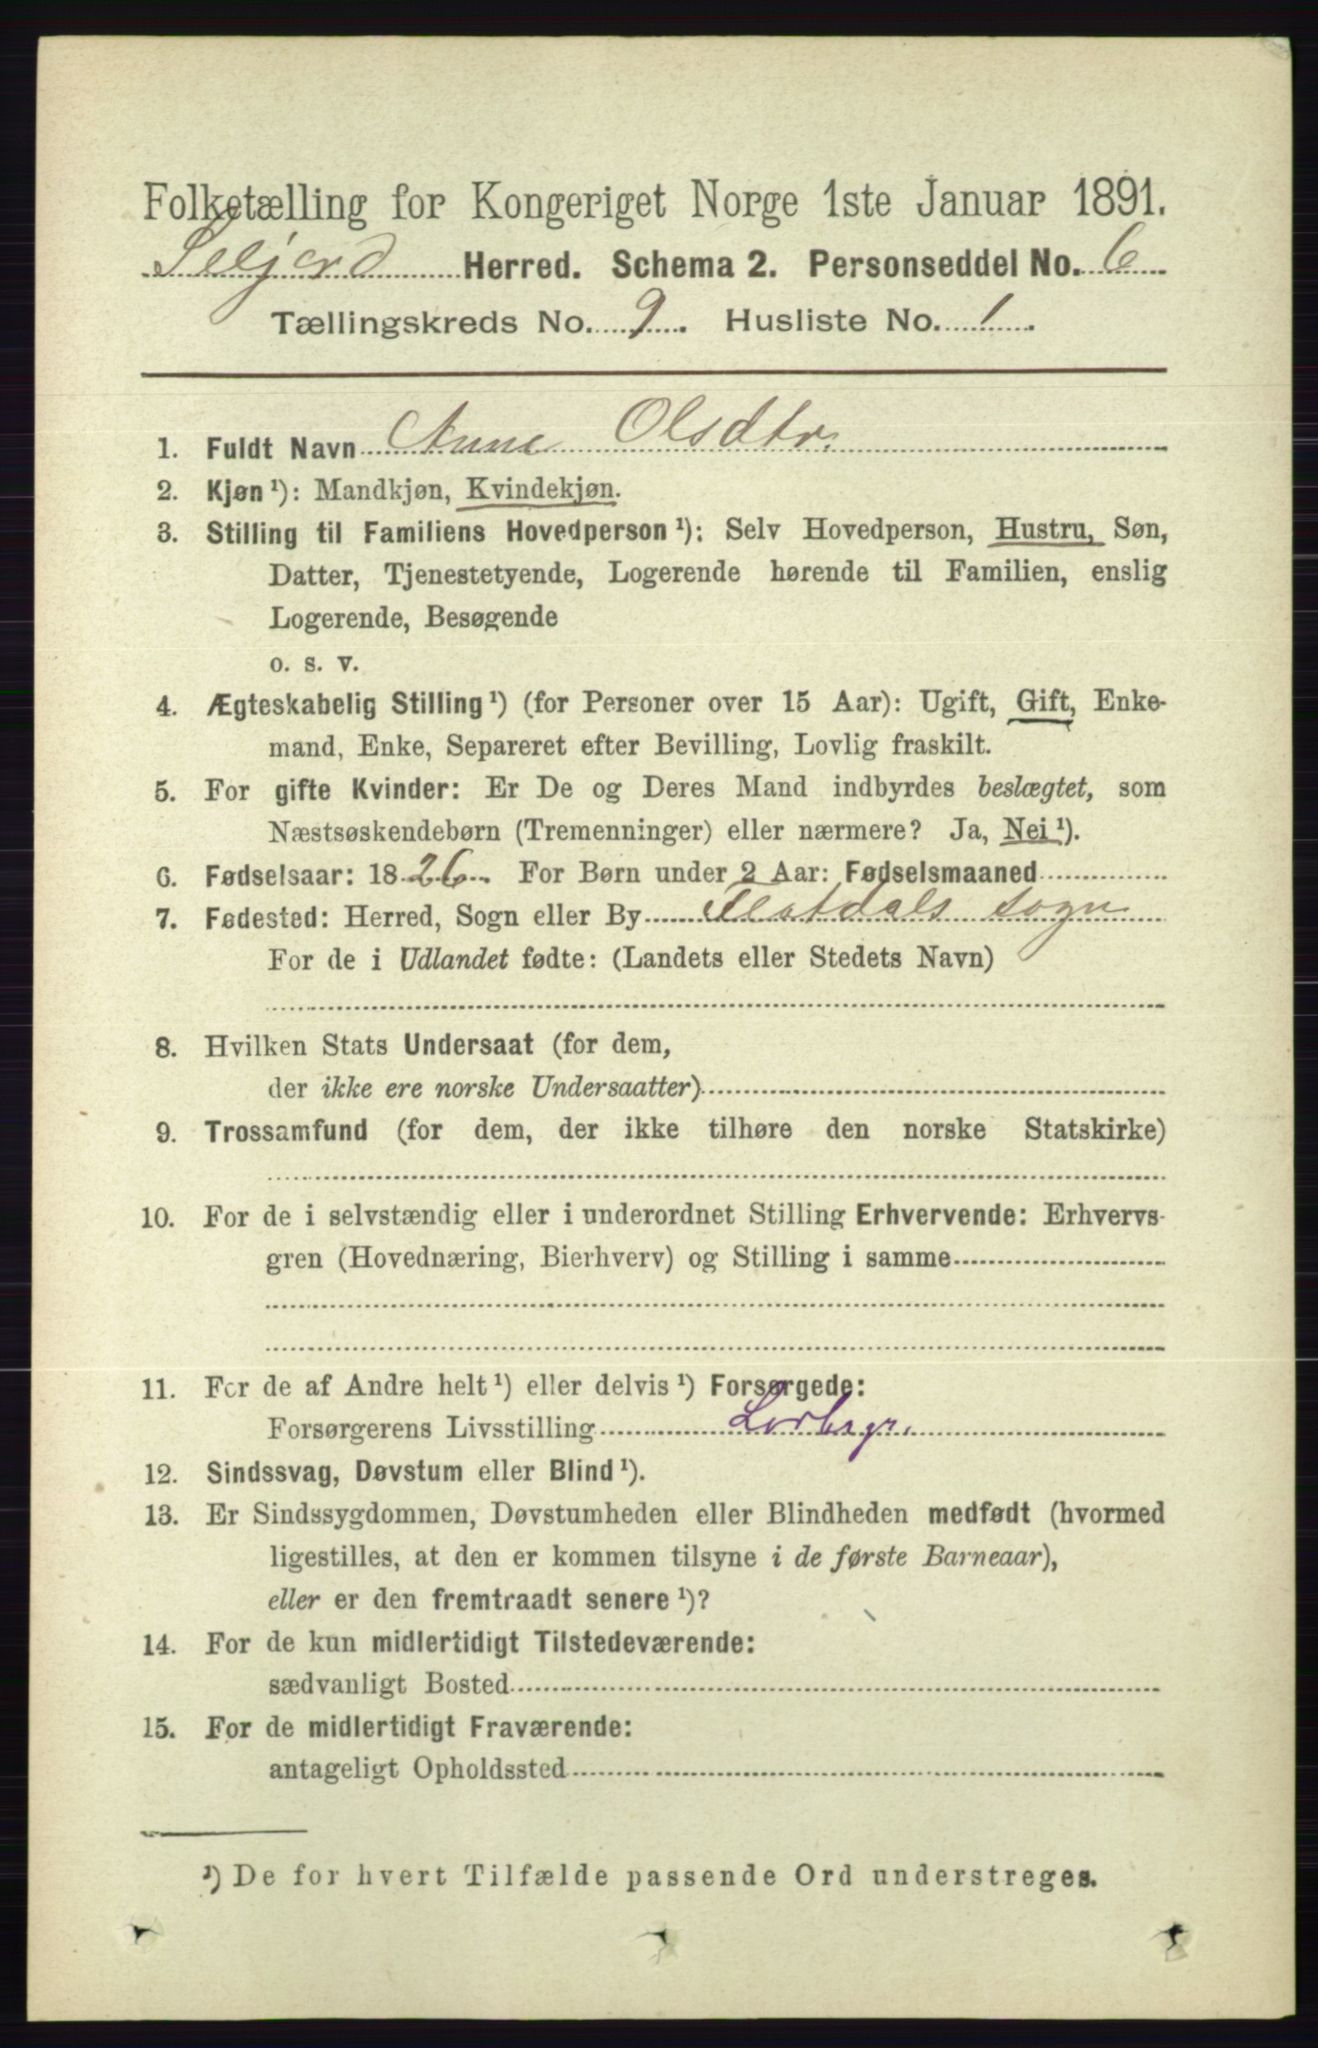 Folketælling for Kongeriget Norge 1ste Januar 1891.
Seljord Herred. Schema 2. Personseddel No. 6
Tællingskreds No. 9. Husliste No. 1.
1. Fuldt Navn Anne Olsdtr.
2. Kjøn ¹): Mandkjøn, Kvindekjøn.
3. Stilling til Familiens Hovedperson ¹): Selv Hovedperson, Hustru, Søn,
Datter, Tjenestetyende, Logerende hørende til Familien, enslig
Logerende, Besøgende
o. s. v.
4. Ægteskabelig Stilling ¹) (for Personer over 15 Aar): Ugift, Gift, Enke-
mand, Enke, Separeret efter Bevilling, Lovlig fraskilt.
5. For gifte Kvinder: Er De og Deres Mand indbyrdes beslægtet, som
Næstsøskendebørn (Tremenninger) eller nærmere? Ja, Nei ¹).
6. Fødselsaar: 1826. For Børn under 2 Aar: Fødselsmaaned
7. Fødested: Herred, Sogn eller By Flatdals sogn
For de i Udlandet fødte: (Landets eller Stedets Navn)
8. Hvilken Stats Undersaat (for dem,
der ikke ere norske Undersaatter)
9. Trossamfund (for dem, der ikke tilhøre den norske Statskirke)
10. For de i selvstændig eller i underordnet Stilling Erhvervende: Erhvervs-
gren (Hovednæring, Bierhverv) og Stilling i samme
11. For de af Andre helt ¹) eller delvis ¹) Forsørgede:
Forsørgerens Livsstilling
12. Sindssvag, Døvstum eller Blind ¹).
13. Er Sindssygdommen, Døvstumheden eller Blindheden medfødt (hvormed
ligestilles, at den er kommen tilsyne i de første Barneaar),
eller er den fremtraadt senere ¹)?
14. For de kun midlertidigt Tilstedeværende:
sædvanligt Bosted
15. For de midlertidigt Fraværende:
antageligt Opholdssted
¹) De for hvert Tilfælde passende Ord understreges.